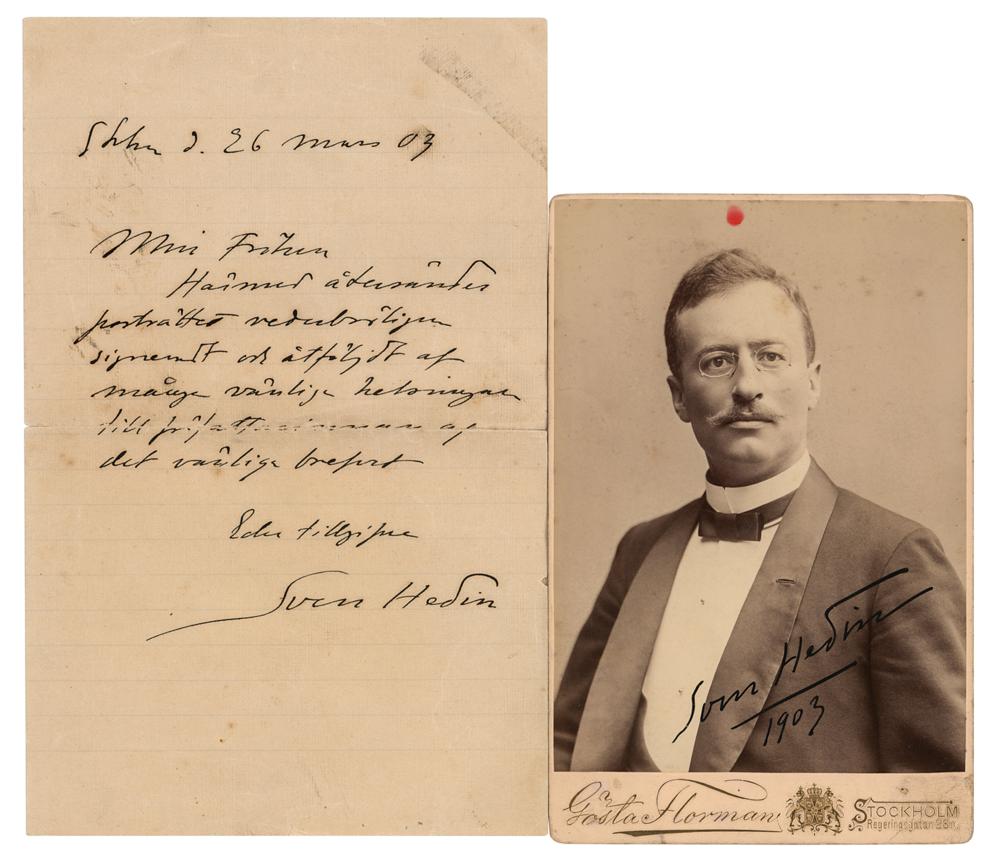 Sthlm d. 26 mars 03
Min Fröken
Härmed återsändes
porträttet vederbörligen
signeradt och åtföljdt af
många vänliga helsningar
till författarinnan af
det vänliga brefvet
Eder tillgifne
Sven Hedin
Sven Hedin
1903
Gösta Florman
STOCKHOLM
Regeringsgatan